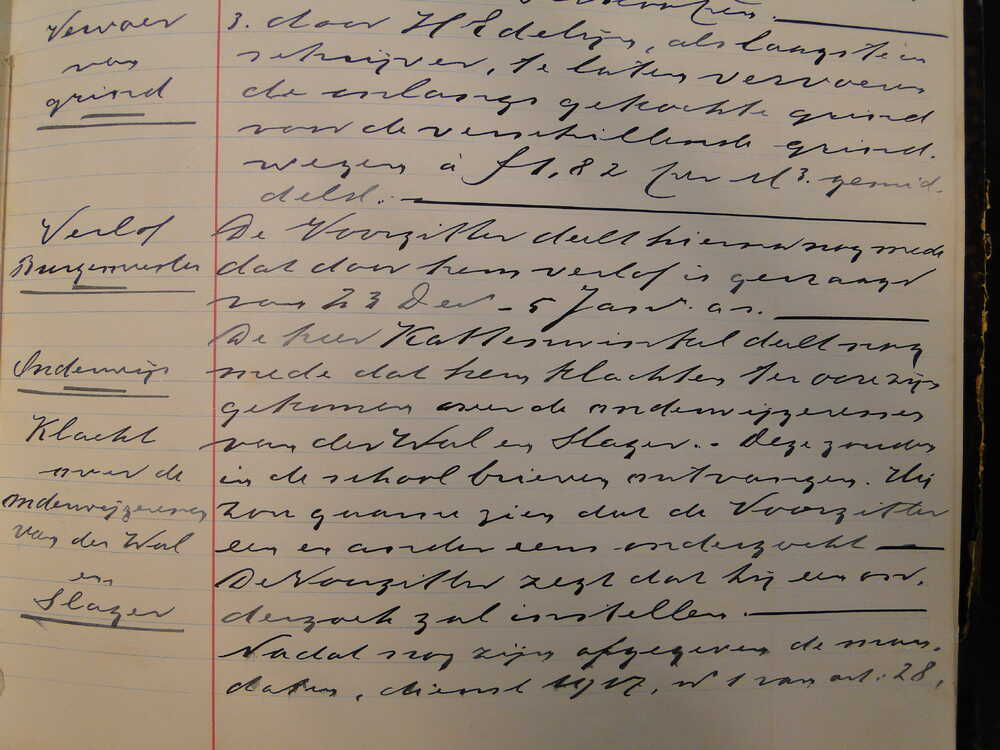 Vervoer
van
grind
3. door H Edelijn, als laagste in
schrijver, te laten vervoeren
de onlangs gekochte grind
voor de verschillende grind.
wegen à f 1,82 per M3. gemid.
deld.
Verlof
Burgemeester
De Voorzitter deelt hierna nog mede
dat door hem verlof is gevraagd
van 23 Dec - 5 Jan. a.s.
Onderwijs
Klacht
over de
onderwijzeressen
van der Wal
en
Slager
De heer Kattenwinkel deelt nog
mede dat hem klachten ter oore zijn
gekomen over de onderwijzeressen
van der Wal en Slager. - Deze zouden
in de school brieven ontvangen. Hij
zou gaarne zien dat de Voorzitter
een en ander eens onderzocht
De Voorzitter zegt dat hij een on.
derzoek zal instellen.
Nadat nog zijn afgegeven de man.
daten, dienst 1917, no 1 van art: 28,